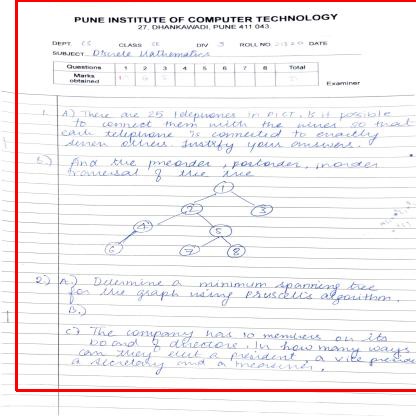 PUNE INSTITUTE OF COMPUTER TECHNOLOGY
27, DHANKAWADI, PUNE 411 043.
DEPT. CLASS DIV ROLL NO. DATE
SUBJECT Discrete Mathematics
Questions 1 2 3 4 5 6 7 8 Total
Marks obtained
Examiner
1. A) There are 25 telephones in PICT. Is it possible
to connect them with the wires so that
each telephone is connected to exactly
seven others. Justify your answers.
Find the preorder, postorder, inorder
traversal of the tree
1
2 3
4 5
6 7 8
2) A) Determine a minimum spanning tree
for the graph using algorithm.
B.)
C) The company has 10 members on its
board of directors. In how many ways
can they elect a president, a vice
a secretary and a